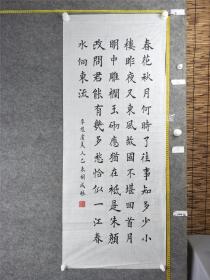 春花秋月何時了往事知多少小
樓昨夜又東風故國不堪回首月
明中雕欄玉砌應猶在祗是朱顏
改問君能有幾多愁恰似一江春
水向東流
李煜虞美人乙未